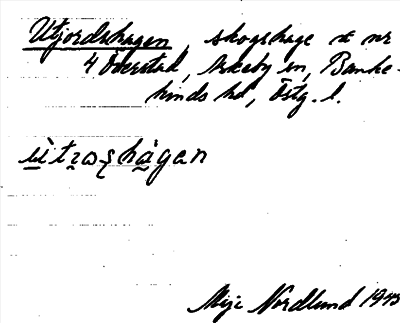 Utjordshagen, skogshage t nr
4 Överstad, Askeby sn, Banke-
kinds hd, Östg. l.
ùtɿωʂhàgan
Maje Nordlund 1945